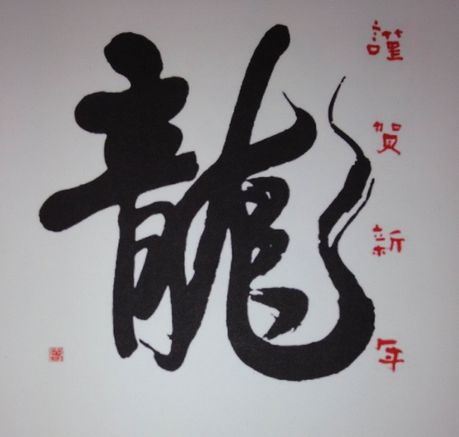 龍
謹賀新年